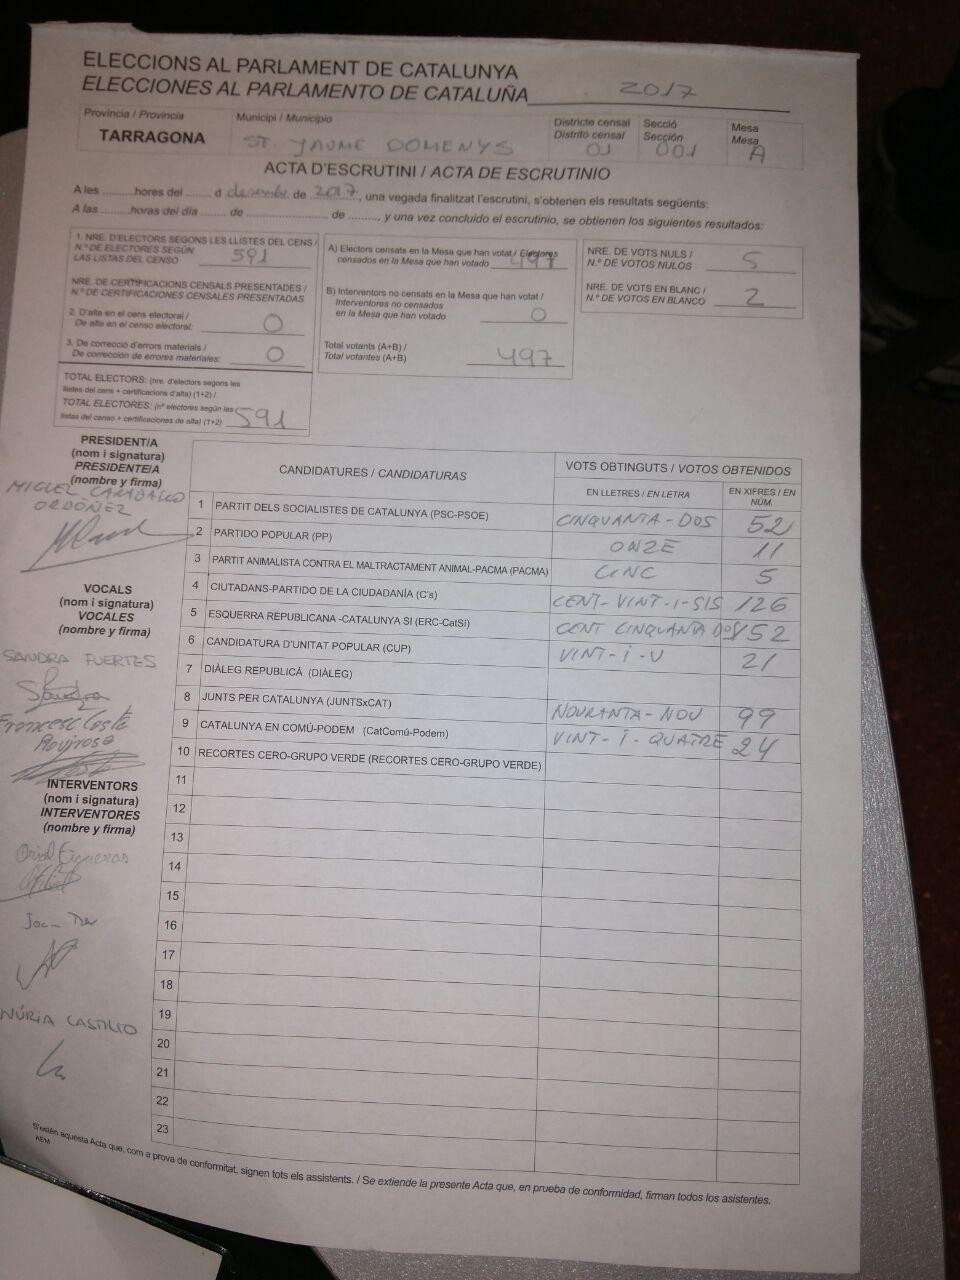 ELECCIONS AL PARLAMENT DE CATALUNYA
ELECCIONES AL PARLAMENTO DE CATALUÑA 2017
Província / Provincia
TARRAGONA
Municipi / Municipio
ST. JAUME DOMENYS
Districte censal
Distrito censal
01
Secció
Sección
001
Mesa
Mesa
A
ACTA D'ESCRUTINI / ACTA DE ESCRUTINIO
A les ..........hores del ........ d desembre de 2017, una vegada finalitzat l'escrutini, s'obtenen els resultats següents:
A las ..........horas del día ........ de ........................... de .........., y una vez concluido el escrutinio, se obtienen los siguientes resultados:
1. NRE. D'ELECTORS SEGONS LES LLISTES DEL CENS /
N.º DE ELECTORES SEGÚN
LAS LISTAS DEL CENSO 591
NRE. DE CERTIFICACIONS CENSALS PRESENTADES /
N.º DE CERTIFICACIONES CENSALES PRESENTADAS
2. D'alta en el cens electoral /
De alta en el censo electoral: 0
3. De correcció d'errors materials /
De corrección de errores materiales: 0
TOTAL ELECTORS: (nre. d'electors segons les
llistes del cens + certificacions d'alta) (1+2) /
TOTAL ELECTORES: (nº electores según las
listas del censo + certificaciones de alta) (1+2) 591
A) Electors censats en la Mesa que han votat / Electores
censados en la Mesa que han votado 497
B) Interventors no censats en la Mesa que han votat /
Interventores no censados
en la Mesa que han votado 0
Total votants (A+B) /
Total votantes (A+B) 497
NRE. DE VOTS NULS /
N.º DE VOTOS NULOS 5
NRE. DE VOTS EN BLANC /
N.º DE VOTOS EN BLANCO 2
PRESIDENT/A
(nom i signatura)
PRESIDENTE/A
(nombre y firma)
MIGUEL CARABALLO
ORDÓÑEZ
VOCALS
(nom i signatura)
VOCALES
(nombre y firma)
SANDRA FUERTES
Sandra
Francesc Coste
Rovirosa
INTERVENTORS
(nom i signatura)
INTERVENTORES
(nombre y firma)
Oriol Figueras
NÚRIA CASTILLO
CANDIDATURES / CANDIDATURAS
VOTS OBTINGUTS / VOTOS OBTENIDOS
EN LLETRES / EN LETRA
EN XIFRES / EN NÚM.
1 PARTIT DELS SOCIALISTES DE CATALUNYA (PSC-PSOE) CINQUANTA-DOS 52
2 PARTIDO POPULAR (PP) ONZE 11
3 PARTIT ANIMALISTA CONTRA EL MALTRACTAMENT ANIMAL-PACMA (PACMA) CINC 5
4 CIUTADANS-PARTIDO DE LA CIUDADANÍA (C's) CENT-VINT-I-SIS 126
5 ESQUERRA REPUBLICANA -CATALUNYA SI (ERC-CatSí) CENT CINQUANTA DOS 152
6 CANDIDATURA D'UNITAT POPULAR (CUP) VINT-I-U 21
7 DIÀLEG REPUBLICÀ (DIÀLEG)
8 JUNTS PER CATALUNYA (JUNTSxCAT) NOURANTA-NOU 99
9 CATALUNYA EN COMÚ-PODEM (CatComú-Podem) VINT-I-QUATRE 24
10 RECORTES CERO-GRUPO VERDE (RECORTES CERO-GRUPO VERDE)
11
12
13
14
15
16
17
18
19
20
21
22
23
S'estén aquesta Acta que, com a prova de conformitat, signen tots els assistents. / Se extiende la presente Acta que, en prueba de conformidad, firman todos los asistentes.
AEM